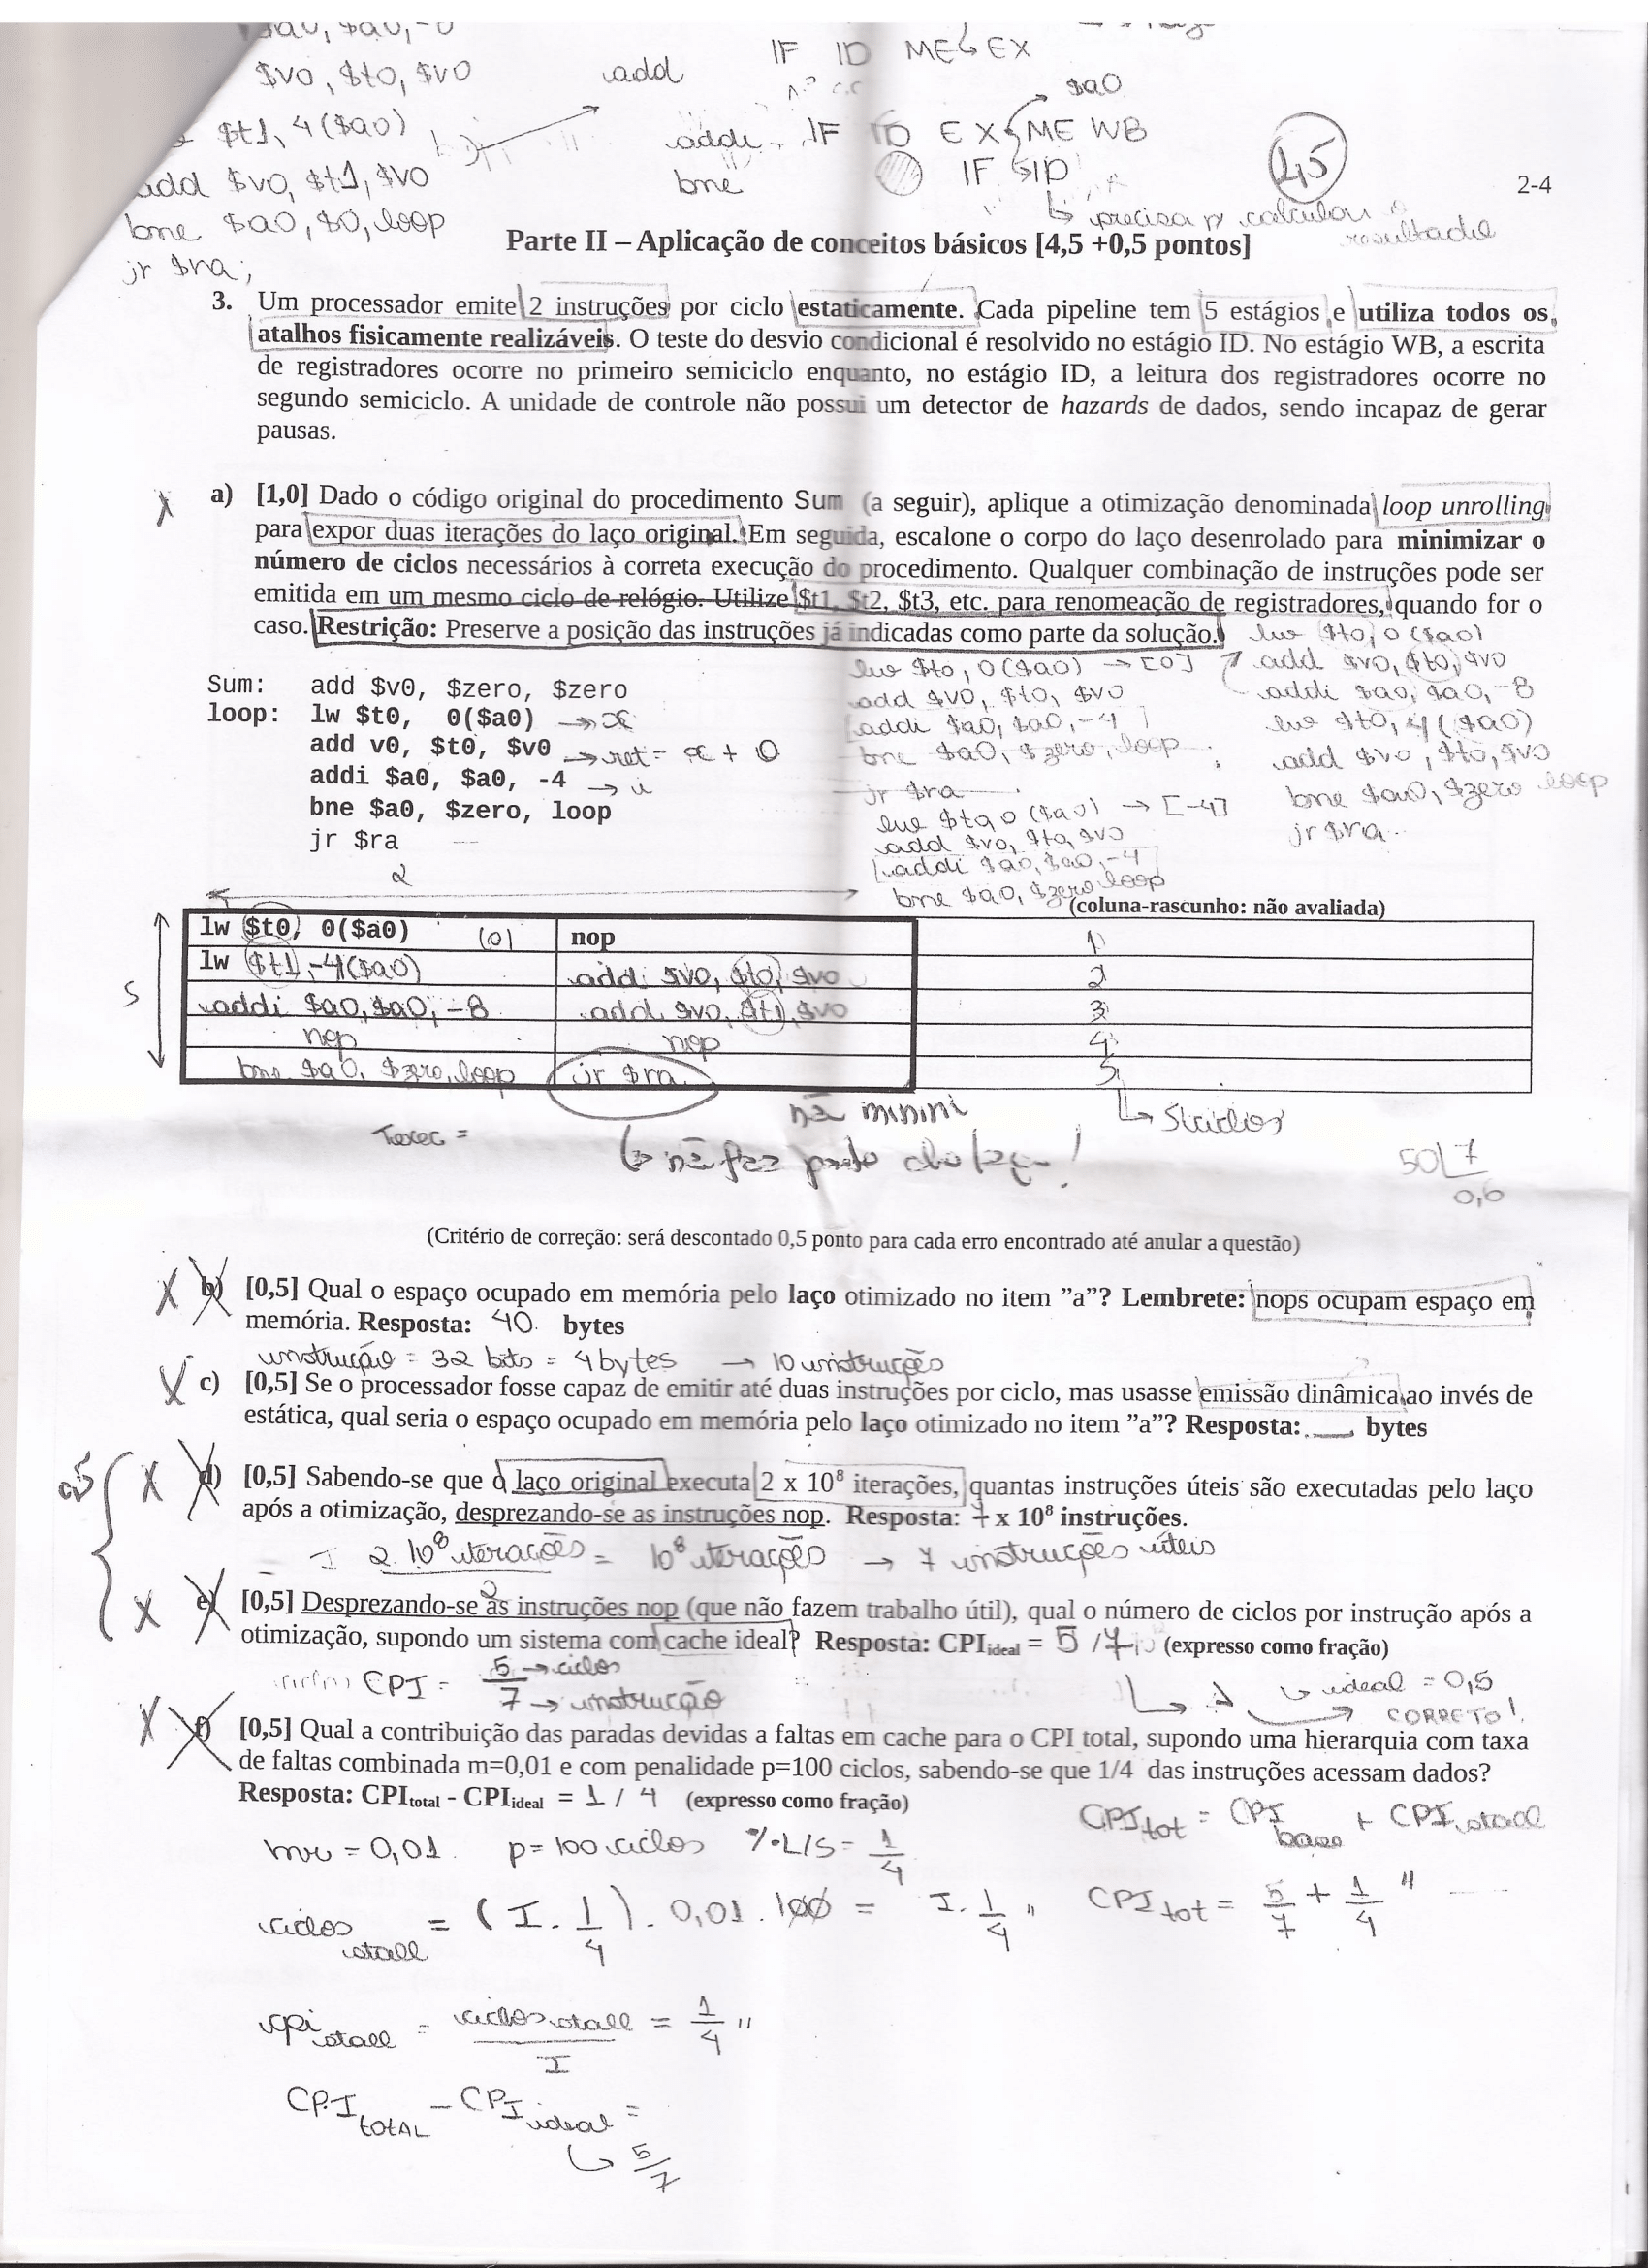 $v0, $t0, $v0
add
IF ID ME EX
$a0
$t1, 4($a0)
addi IF ID EX ME WB
4,5
add $v0, $t1, $v0
bne IF ID
2-4
bne $a0, $0, loop
precisa p/ calcular resultado
Parte II – Aplicação de conceitos básicos [4,5 +0,5 pontos]
jr $ra;
3. Um processador emite 2 instruções por ciclo estaticamente. Cada pipeline tem 5 estágios e utiliza todos os
atalhos fisicamente realizáveis. O teste do desvio condicional é resolvido no estágio ID. No estágio WB, a escrita
de registradores ocorre no primeiro semiciclo enquanto, no estágio ID, a leitura dos registradores ocorre no
segundo semiciclo. A unidade de controle não possui um detector de hazards de dados, sendo incapaz de gerar
pausas.
X a) [1,0] Dado o código original do procedimento Sum (a seguir), aplique a otimização denominada loop unrolling
para expor duas iterações do laço original. Em seguida, escalone o corpo do laço desenrolado para minimizar o
número de ciclos necessários à correta execução do procedimento. Qualquer combinação de instruções pode ser
emitida em um mesmo ciclo de relógio. Utilize $t1, $t2, $t3, etc. para renomeação de registradores, quando for o
caso. Restrição: Preserve a posição das instruções já indicadas como parte da solução.
Sum: add $v0, $zero, $zero
loop: lw $t0, 0($a0) → x
add v0, $t0, $v0 → ret = x + 0
addi $a0, $a0, -4 → i
bne $a0, $zero, loop
jr $ra
lw $t0, 0($a0) → [0]
add $v0, $t0, $v0
addi $a0, $a0, -4
bne $a0, $zero, loop
jr $ra
lw $t0, 0($a0) → [-4]
add $v0, $t0, $v0
addi $a0, $a0, -4
bne $a0, $zero loop
lw $t0, 0($a0)
add $v0, $t0, $v0
addi $a0, $a0, -8
lw $t0, 4($a0)
add $v0, $t0, $v0
bne $a0, $zero loop
jr $ra
2
(coluna-rascunho: não avaliada)
lw $t0, 0($a0) (0) nop 1
lw $t1, -4($a0) addi $v0, $t0, $v0 2
5
addi $a0, $a0, -8 add $v0, $t1, $v0 3
nop nop 4
bne $a0, $zero, loop jr $ra 5
5 ciclos
Texec =
não faz parte do laço!
50 7
0,6
(Critério de correção: será descontado 0,5 ponto para cada erro encontrado até anular a questão)
X b) [0,5] Qual o espaço ocupado em memória pelo laço otimizado no item ”a”? Lembrete: nops ocupam espaço em
memória. Resposta: 40 bytes
instrução = 32 bits = 4 bytes → 10 instruções
X c) [0,5] Se o processador fosse capaz de emitir até duas instruções por ciclo, mas usasse emissão dinâmica ao invés de
estática, qual seria o espaço ocupado em memória pelo laço otimizado no item ”a”? Resposta: ___ bytes
0,5
X d) [0,5] Sabendo-se que o laço original executa 2 x 10⁸ iterações, quantas instruções úteis são executadas pelo laço
após a otimização, desprezando-se as instruções nop. Resposta: 7 x 10⁸ instruções.
2.10⁸ iterações / 2 = 10⁸ iterações → 7 instruções úteis
X e) [0,5] Desprezando-se as instruções nop (que não fazem trabalho útil), qual o número de ciclos por instrução após a
otimização, supondo um sistema com cache ideal? Resposta: CPIideal = 5 / 7 (expresso como fração)
CPI = 5 → ciclos
7 → instrução
ideal = 0,5
CORRETO!
X f) [0,5] Qual a contribuição das paradas devidas a faltas em cache para o CPI total, supondo uma hierarquia com taxa
de faltas combinada m=0,01 e com penalidade p=100 ciclos, sabendo-se que 1/4 das instruções acessam dados?
Resposta: CPItotal - CPIideal = 1 / 4 (expresso como fração)
CPI tot = CPI base + CPI stall
mr = 0,01 p = 100 ciclos %L/S = 1/4
ciclos stall = (I . 1/4) . 0,01 . 100 = I . 1/4 "
CPI tot = 5/7 + 1/4 "
cpi stall = ciclos stall / I = 1/4 "
CPI TOTAL - CPI ideal =
5/7